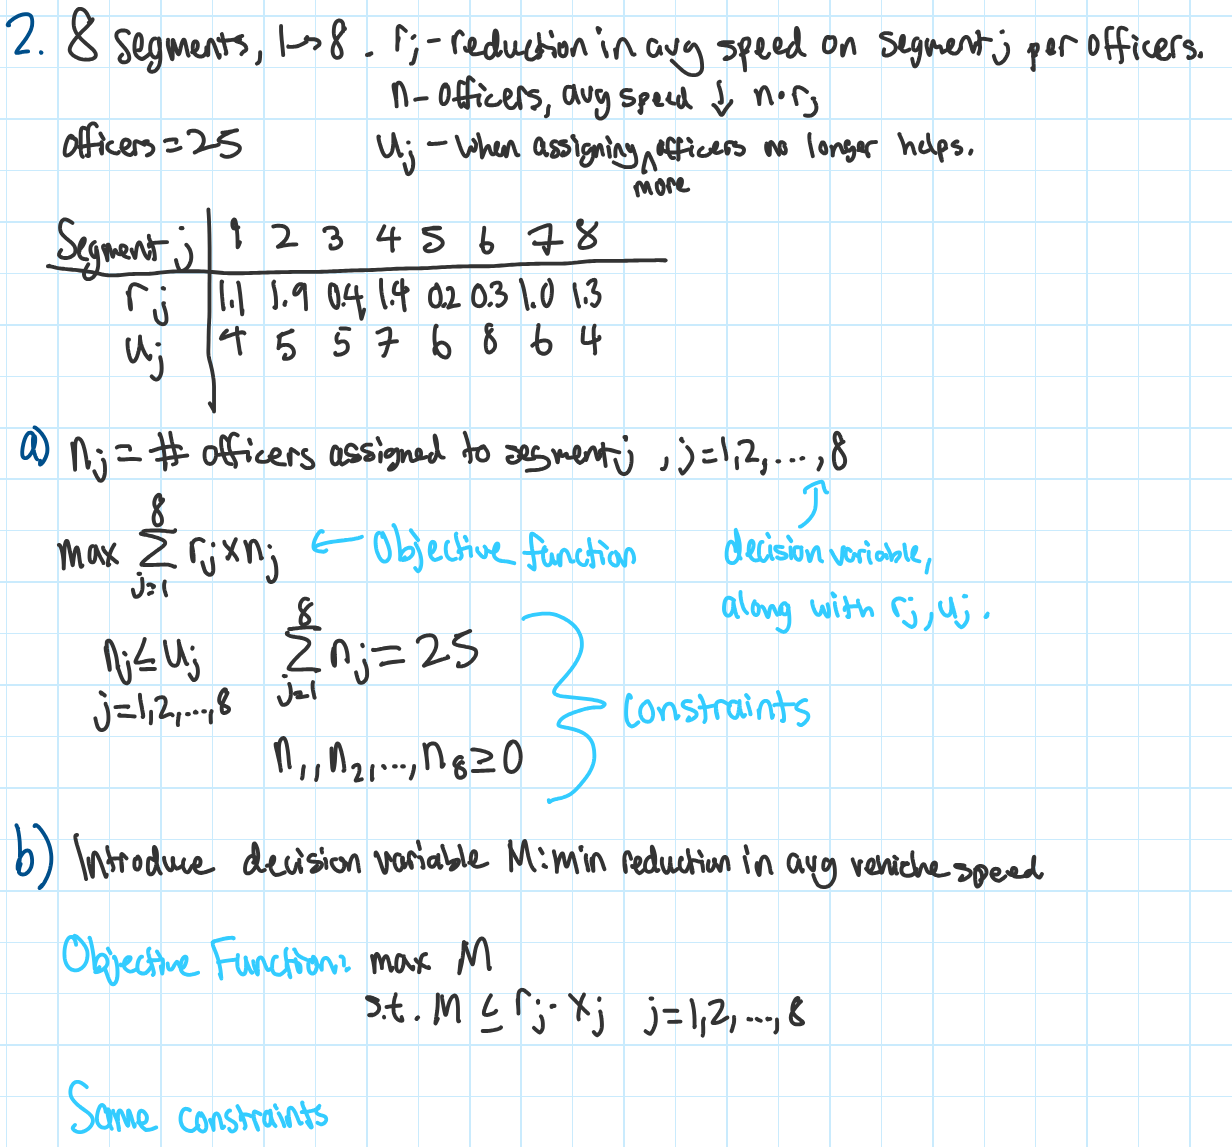 2. 8 segments, 1→8. rj - reduction in avg speed on segment j per officers.
n - officers, avg speed ↓ n·rj
officers = 25 uj - when assigning ^ officers no longer helps.
more
Segment j 1 2 3 4 5 6 7 8
rj 1.1 1.9 0.4 1.4 0.2 0.3 1.0 1.3
uj 4 5 5 7 6 8 6 4
a) nj = # officers assigned to segment j, j=1,2,...,8
max 8 Σ j=1 rj x nj ← Objective function decision variable,
along with rj, uj.
nj ≤ uj 8 Σ j=1 nj = 25
j=1,2,...,8 constraints
n1, n2, ..., n8 ≥ 0
b) Introduce decision variable M: min reduction in avg vehicle speed
Objective Function: max M
s.t. M ≤ rj · xj j=1,2,...,8
Same constraints